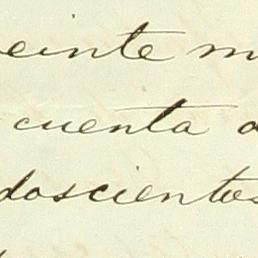 einte m
cuenta
doscientos